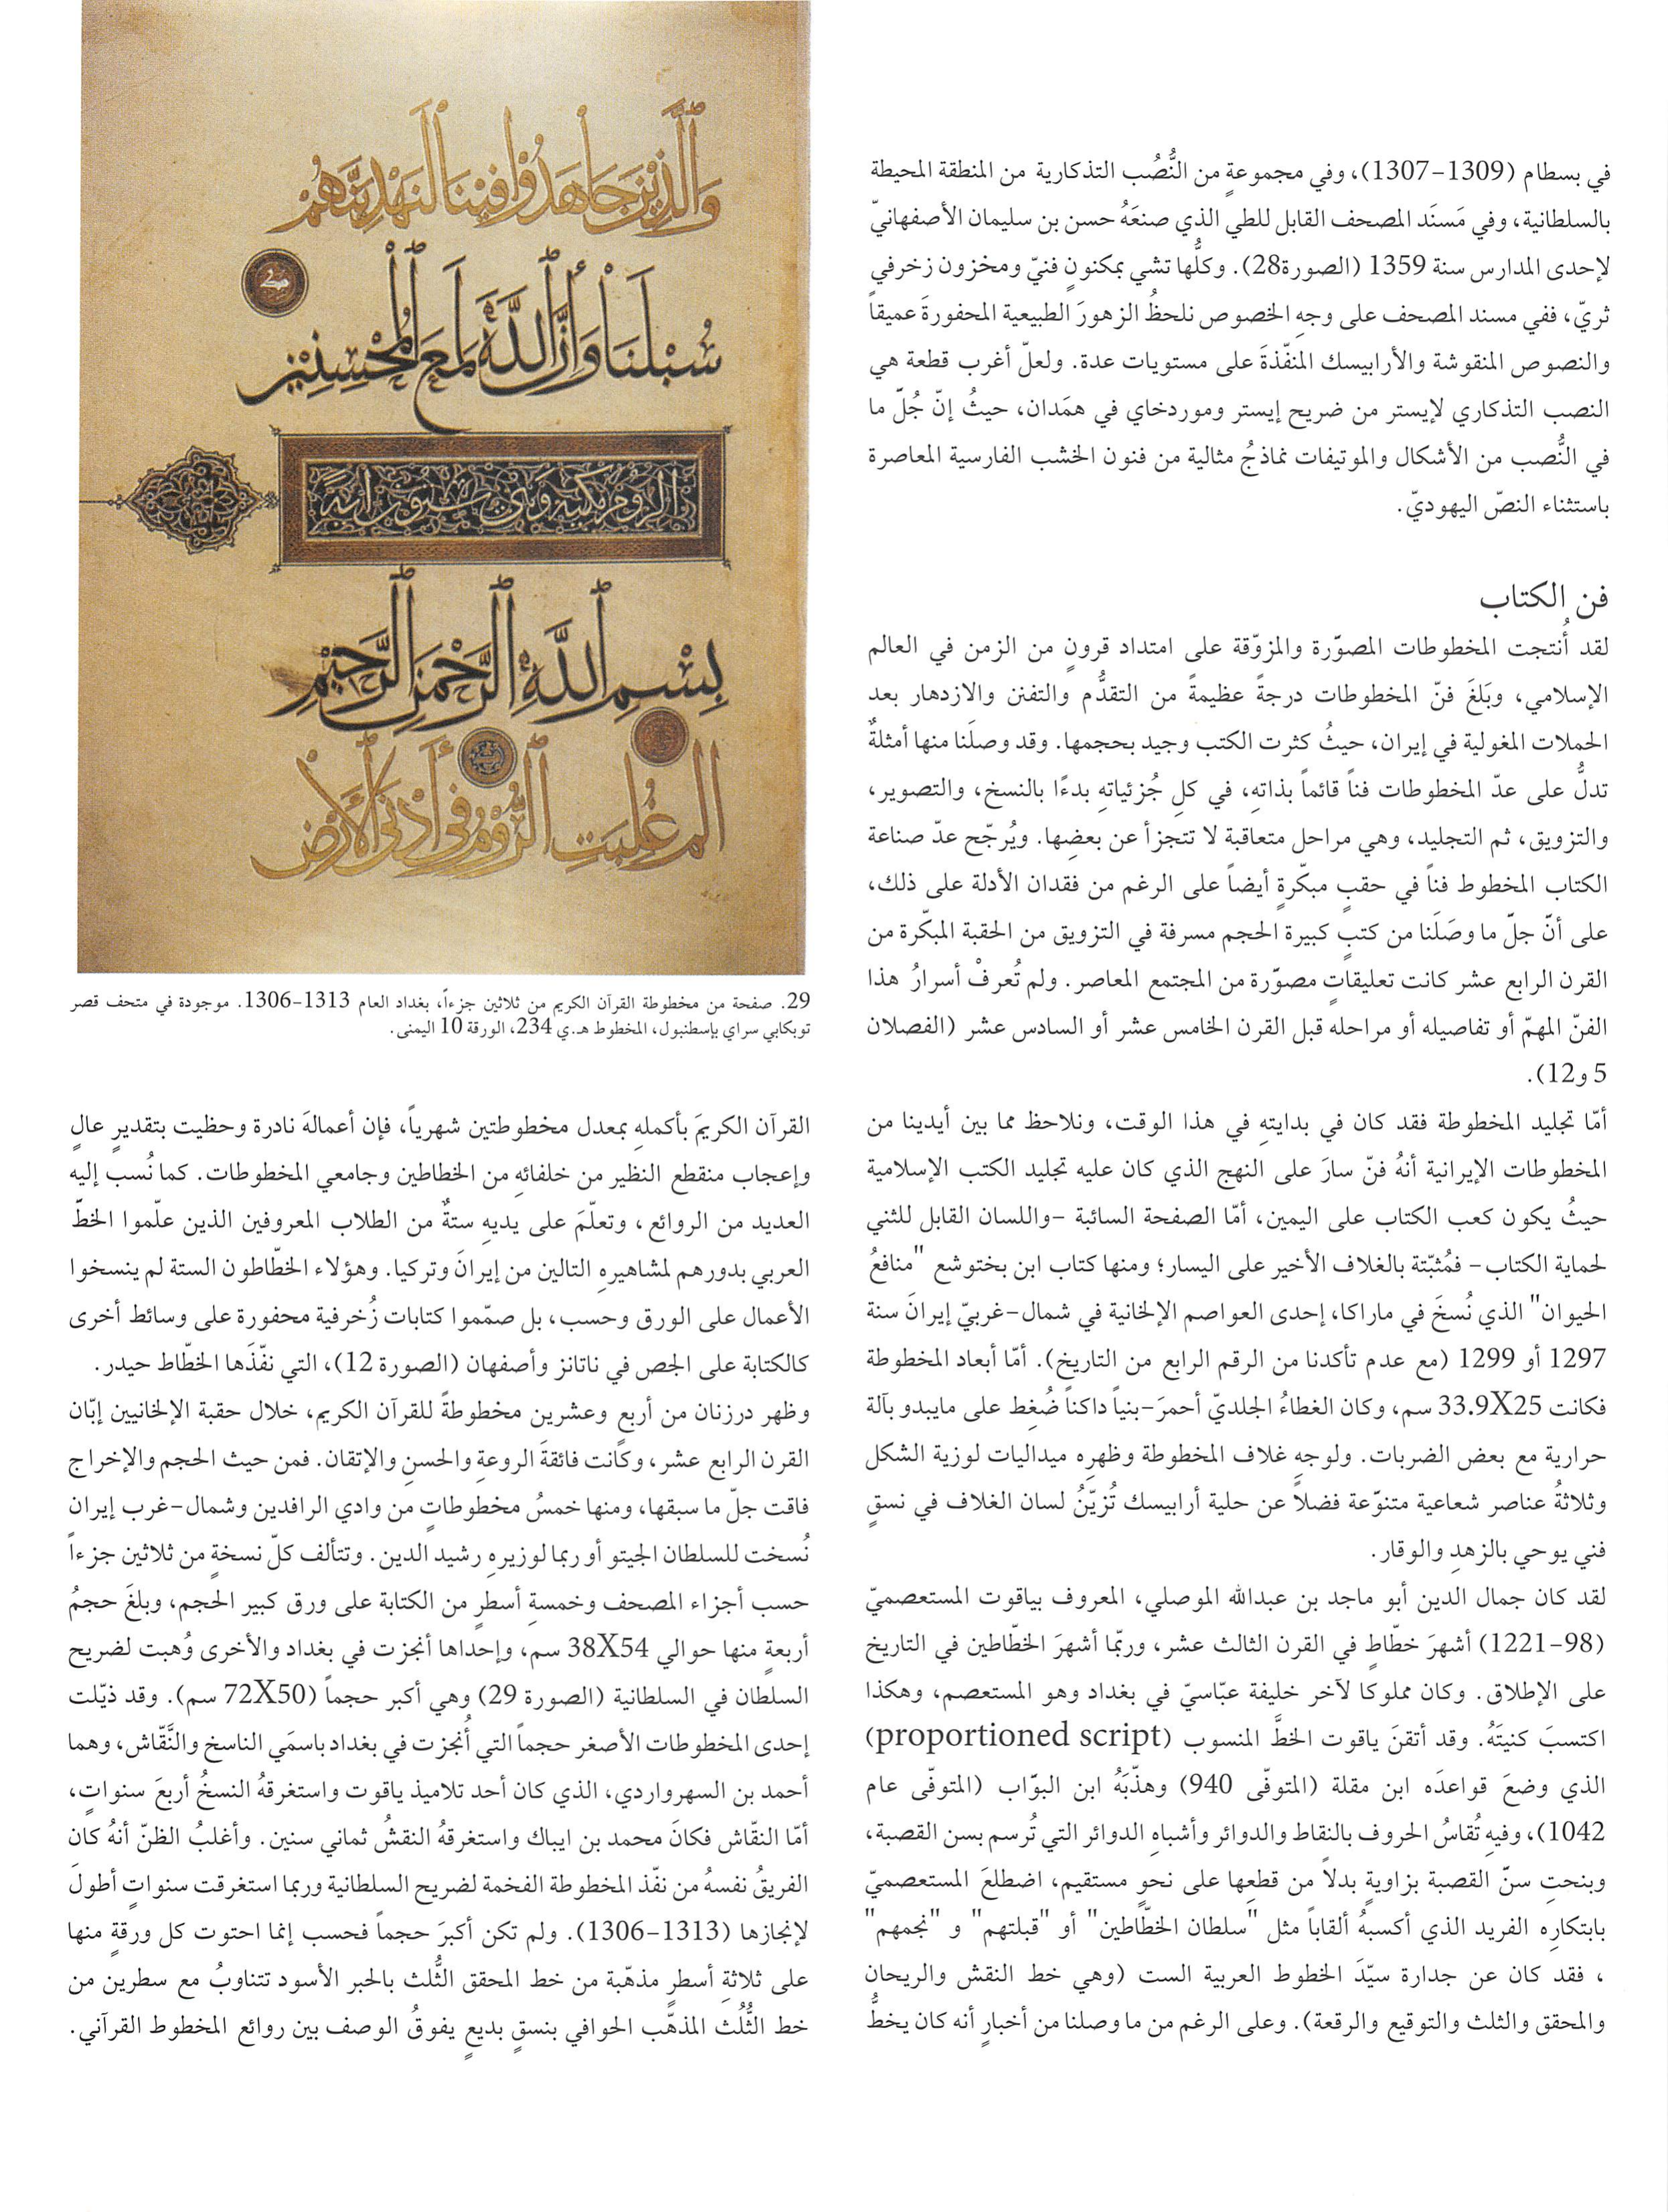 في بسطام (1309-1307)، وفي مجموعةٍ من النُّصُب التذكارية من المنطقة المحيطة
بالسلطانية، وفي مَسنَد المصحف القابل للطي الذي صنعَهُ حسن بن سليمان الأصفهانيّ
لإحدى المدارس سنة 1359 (الصورة28). وكلُّها تشي بمكنونٍ فنيّ ومخزون زخرفي
ثريّ، ففي مسند المصحف على وجهِ الخصوص نلحظُ الزهورَ الطبيعية المحفورةَ عميقاً
والنصوص المنقوشة والأرابيسك المنفّذةَ على مستويات عدة. ولعلّ أغرب قطعة هي
النصب التذكاري لإيستر من ضريح إيستر وموردخاي في همَدان، حيثُ إنّ جُلّ ما
في النُّصب من الأشكال والموتيفات نماذجُ مثالية من فنون الخشب الفارسية المعاصرة
باستثناء النصّ اليهوديّ.
فن الكتاب
لقد أُنتجت المخطوطات المصوّرة والمزوّقة على امتداد قرونٍ من الزمن في العالم
الإسلامي، وبَلغَ فنّ المخطوطات درجةً عظيمةً من التقدُّم والتفنن والازدهار بعد
الحملات المغولية في إيران، حيثُ كثرت الكتب وجيد بحجمها. وقد وصلَنا منها أمثلةٌ
تدلُّ على عدّ المخطوطات فناً قائماً بذاتهِ، في كلِ جُزئياتهِ بدءًا بالنسخ، والتصوير،
والتزويق، ثم التجليد، وهي مراحل متعاقبة لا تتجزأ عن بعضِها. ويُرجّح عدّ صناعة
الكتاب المخطوط فناً في حقبٍ مبكّرةٍ أيضاً على الرغم من فقدان الأدلة على ذلك،
على أنّ جلّ ما وصَلَنا من كتبٍ كبيرة الحجم مسرفة في التزويق من الحقبة المبكّرة من
القرن الرابع عشر كانت تعليقاتٍ مصوّرة من المجتمع المعاصر. ولم تُعرفْ أسرارُ هذا
الفنّ المهمّ أو تفاصيله أو مراحله قبل القرن الخامس عشر أو السادس عشر (الفصلان
5 و12).
أمّا تجليد المخطوطة فقد كان في بدايتهِ في هذا الوقت، ونلاحظ مما بين أيدينا من
المخطوطات الإيرانية أنهُ فنّ سارَ على النهج الذي كان عليه تجليد الكتب الإسلامية
حيثُ يكون كعب الكتاب على اليمين، أمّا الصفحة السائبة -واللسان القابل للثني
لحماية الكتاب- فمُثبّتة بالغلاف الأخير على اليسار؛ ومنها كتاب ابن بختوشع "منافعُ
الحيوان" الذي نُسخَ في ماراكا، إحدى العواصم الإلخانية في شمال-غربيّ إيرانَ سنة
1297 أو 1299 (مع عدم تأكدنا من الرقم الرابع من التاريخ). أمّا أبعاد المخطوطة
فكانت 33.9X25 سم، وكان الغطاءُ الجلديّ أحمرَ-بنياً داكناً ضُغِط على مايبدو بآلة
حرارية مع بعض الضربات. ولوجهِ غلاف المخطوطة وظهرِه ميداليات لوزية الشكل
وثلاثةُ عناصر شعاعية متنوّعة فضلاً عن حلية أرابيسك تُزيّنُ لسان الغلاف في نسقٍ
فني يوحي بالزهدِ والوقار.
لقد كان جمال الدين أبو ماجد بن عبدالله الموصلي، المعروف بياقوت المستعصميّ
(98-1221) أشهرَ خطّاطٍ في القرن الثالث عشر، وربّما أشهرَ الخطّاطين في التاريخ
على الإطلاق. وكان مملوكا لآخر خليفة عبّاسيّ في بغداد وهو المستعصم، وهكذا
اكتسبَ كنيتَهُ. وقد أتقنَ ياقوت الخطَّ المنسوب (proportioned script)
الذي وضعَ قواعدَه ابن مقلة (المتوفّى 940) وهذّبَهُ ابن البوّاب (المتوفّى عام
1042)، وفيهِ تُقاسُ الحروف بالنقاط والدوائر وأشباهِ الدوائر التي تُرسم بسن القصبة،
وبنحتِ سنّ القصبة بزاويةٍ بدلاً من قطعِها على نحوٍ مستقيم، اضطلعَ المستعصميّ
بابتكارِه الفريد الذي أكسبهُ ألقاباً مثل "سلطان الخطّاطين" أو "قبلتهم" و "نجمهم"
، فقد كان عن جدارة سيّدَ الخطوط العربية الست (وهي خط النقش والريحان
والمحقق والثلث والتوقيع والرقعة). وعلى الرغم من ما وصلنا من أخبارٍ أنه كان يخطُّ
وَالَّذِينَ جَاهَدُوا فِينَا لَنَهْدِيَنَّهُمْ
سُبُلَنَا وَإِنَّ اللَّهَ لَمَعَ الْمُحْسِنِينَ
بِسْمِ اللَّهِ الرَّحْمَنِ الرَّحِيمِ
الم غُلِبَتِ الرُّومُ فِي أَدْنَى الْأَرْضِ
29. صفحة من مخطوطة القرآن الكريم من ثلاثين جزءاً، بغداد العام 1313-1306. موجودة في متحف قصر
توبكابي سراي بإسطنبول، المخطوط هـ.ي 234، الورقة 10 اليمنى.
القرآن الكريمَ بأكملهِ بمعدل مخطوطتين شهرياً، فإن أعمالهَ نادرة وحظيت بتقديرٍ عالٍ
وإعجاب منقطع النظير من خلفائهِ من الخطاطين وجامعي المخطوطات. كما نُسب إليه
العديد من الروائع، وتعلّمَ على يديهِ ستةٌ من الطلاب المعروفين الذين علّموا الخطّ
العربي بدورهم لمشاهيرهِ التالين من إيرانَ وتركيا. وهؤلاء الخطّاطون الستة لم ينسخوا
الأعمال على الورق وحسب، بل صمّموا كتابات زُخرفية محفورة على وسائط أخرى
كالكتابة على الجص في ناتانز وأصفهان (الصورة 12)، التي نفّذَها الخطّاط حيدر.
وظهر درزنان من أربعٍ وعشرين مخطوطةً للقرآن الكريم، خلال حقبة الإلخانيين إبّان
القرن الرابع عشر، وكانت فائقةَ الروعةِ والحسنِ والإتقان. فمن حيث الحجم والإخراج
فاقت جلّ ما سبقها، ومنها خمسُ مخطوطاتٍ من وادي الرافدين وشمال-غرب إيران
نُسخت للسلطان الجيتو أو ربما لوزيرهِ رشيد الدين. وتتألف كلّ نسخةٍ من ثلاثين جزءاً
حسب أجزاء المصحف وخمسةِ أسطرٍ من الكتابة على ورق كبير الحجم، وبلغَ حجمُ
أربعةٍ منها حوالي 38X54 سم، وإحداها أنجزت في بغداد والأخرى وُهبت لضريح
السلطان في السلطانية (الصورة 29) وهي أكبر حجماً (72X50 سم). وقد ذيّلت
إحدى المخطوطات الأصغر حجماً التي أُنجزت في بغداد باسمَي الناسخ والنَّقّاش، وهما
أحمد بن السهرواردي، الذي كان أحد تلاميذ ياقوت واستغرقهُ النسخُ أربعَ سنواتٍ،
أمّا النقّاش فكانَ محمد بن ايباك واستغرقهُ النقشُ ثماني سنين. وأغلبُ الظنّ أنهُ كان
الفريقُ نفسهُ من نفّذ المخطوطة الفخمة لضريح السلطانية وربما استغرقت سنواتٍ أطولَ
لإنجازها (1313-1306). ولم تكن أكبرَ حجماً فحسب إنما احتوت كل ورقةٍ منها
على ثلاثةِ أسطرٍ مذهّبة من خط المحقق الثُّلث بالحبر الأسود تتناوبُ مع سطرين من
خط الثُّلُث المذهّب الحوافي بنسقٍ بديعٍ يفوقُ الوصف بين روائع المخطوط القرآني.